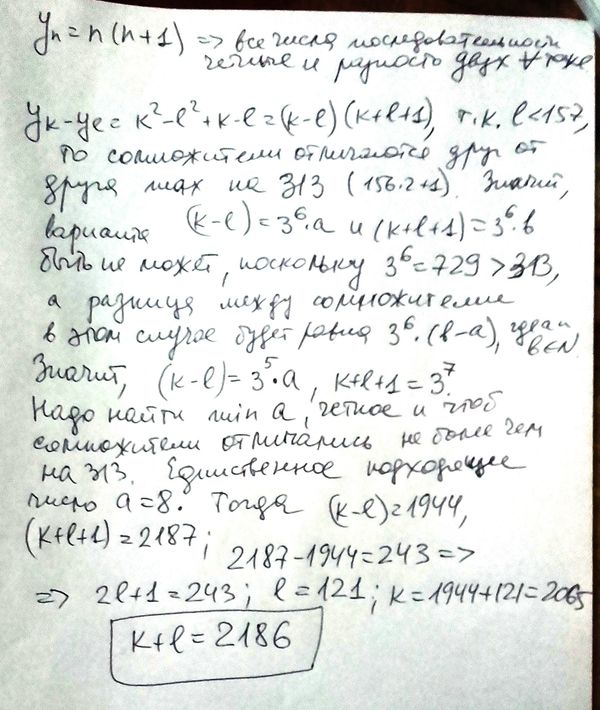 yn = n(n+1) => все числа последовательности
четные и разность двух ∀ тоже
yk-yl = k²-l²+k-l = (k-l)(k+l+1), т.к. l<157,
то сомножители отличаются друг от
друга max на 313 (156·2+1). Значит,
варианта (k-l)=3⁶·a и (k+l+1)=3⁶·b
быть не может, поскольку 3⁶=729>313,
а разница между сомножителями
в этом случае будет равна 3⁶·(b-a), где a и b∈N.
Значит, (k-l)=3⁵·a, k+l+1=3⁷.
Надо найти min a, четное и чтоб
сомножители отличались не более чем
на 313. Единственное подходящее
число a=8. Тогда (k-l)=1944,
(k+l+1)=2187; 2187-1944=243 =>
=> 2l+1=243; l=121; k=1944+121=2065
k+l=2186